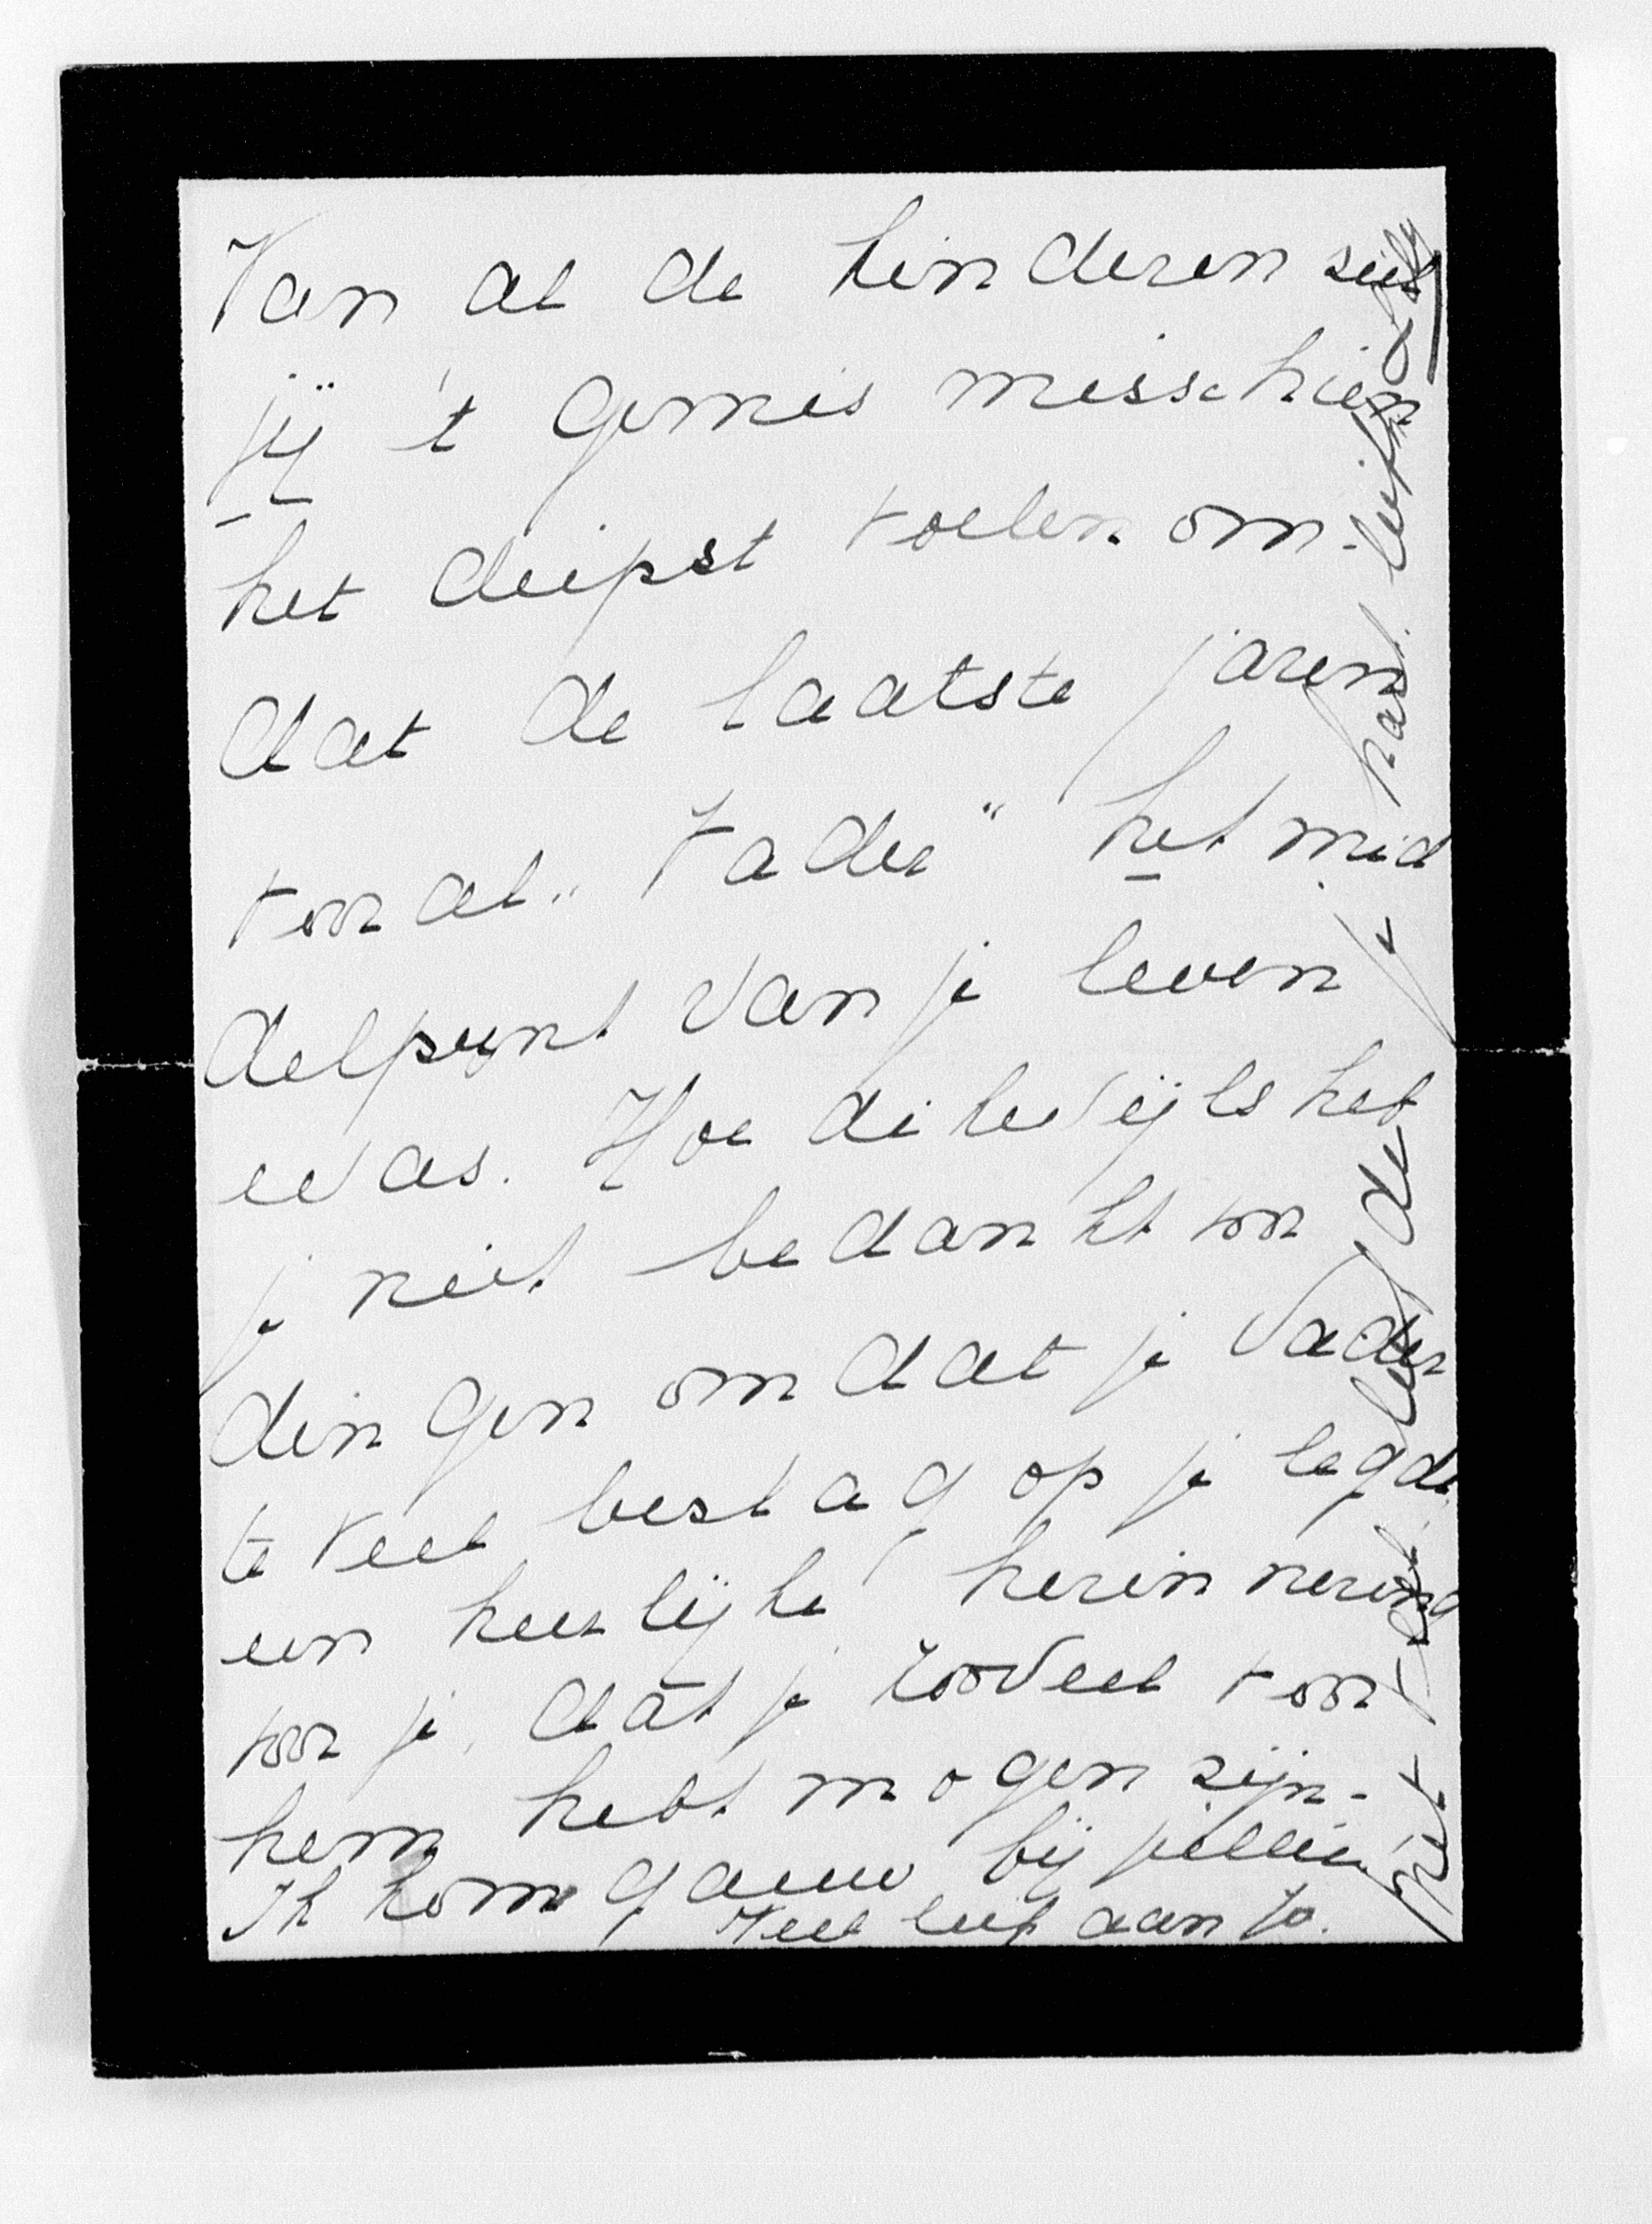 Van al de kinderen zult
jij 't gemis misschien
het diepst voelen om-
dat de laatste jaren
vooral „Vader" het mid
delpunt van je leven
was. Hoe dikwijls heb
je niet bedankt voor
dingen omdat je Vader
te veel beslag op je legde.
een heerlijke herinnering
voor je, dat je zooveel voor
hem hebt mogen zijn.
Ik kom gauw bij jullie.
Veel liefs aan Jo.
met de
je hart. liefh.